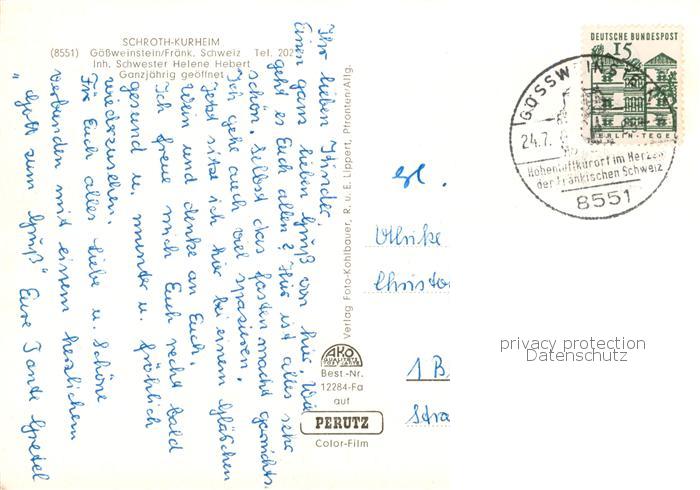 SCHROTH-KURHEIM
(8551) Gößweinstein/Fränk. Schweiz Tel. 202
Inh. Schwester Helene Hebert
Ganzjährig geöffnet
Ihr lieben Kinder,
Einen ganz lieben Gruß von hier. Wie
geht es Euch allen? Hier ist alles sehr
schön. Selbst das fasten macht garnichts.
Ich gehe auch viel spazieren.
Jetzt sitze ich hier bei einem Gläschen
Wein und denke an Euch.
Ich freue mich Euch recht bald
gesund u. munter u. fröhlich
wiederzusehen.
Für Euch alles Liebe u. Schöne
verbunden mit einem herzlichen
"Gott zum Gruß" Eure Tante Gretel
Verlag Foto-Kohlbauer, R. u. E. Lippert, Pfronten/Allg.
AKO
Best-Nr.
12284-Fa
auf
PERUTZ
Color-Film
DEUTSCHE BUNDESPOST
15
BERLIN-TEGEL
GÖSSWEINSTEIN
24.7.
Höhenluftkurort im Herzen
der Fränkischen Schweiz
8551
Ulrike
Christo
1 B
Stra
privacy protection
Datenschutz